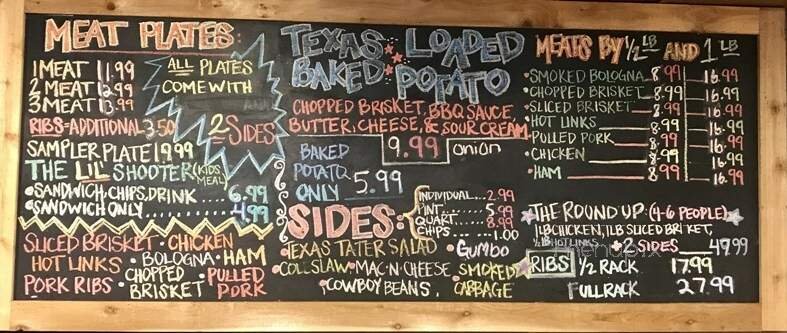 MEAT PLATES:
1 MEAT 11.99
2 MEAT 12.99
3 MEAT 13.99
RIBS=ADDITIONAL 3.50
ALL PLATES
COME WITH
2 SIDES
SAMPLER PLATE 19.99
THE LIL SHOOTER (KIDS MEAL)
•SANDWICH, CHIPS, DRINK.... 6.99
•SANDWICH ONLY......... 4.99
SLICED BRISKET • CHICKEN
HOT LINKS • BOLOGNA • HAM
PORK RIBS • CHOPPED BRISKET • PULLED PORK
TEXAS LOADED
BAKED POTATO
CHOPPED BRISKET, BBQ SAUCE,
BUTTER, CHEESE, & SOUR CREAM
9.99 onion
BAKED
POTATO
ONLY 5.99
SIDES:
INDIVIDUAL... 2.99
PINT...... 5.99
QUART.... 8.99
CHIPS..... 1.00
•TEXAS TATER SALAD • GUMBO
•COLESLAW •MAC-N-CHEESE •SMOKED
•COWBOY BEANS. CABBAGE
MEATS BY 1/2 LB AND 1 LB
•SMOKED BOLOGNA 8.99 16.99
•CHOPPED BRISKET 8.99 16.99
•SLICED BRISKET 8.99 16.99
•HOT LINKS 8.99 16.99
•PULLED PORK 8.99 16.99
•CHICKEN 8.99 16.99
•HAM 8.99 16.99
THE ROUND UP: (4-6 PEOPLE)
1LB CHICKEN, 1LB SLICED BRISKET,
1/2 LB HOT LINKS +2 SIDES 49.99
RIBS 1/2 RACK 17.99
FULL RACK 27.99